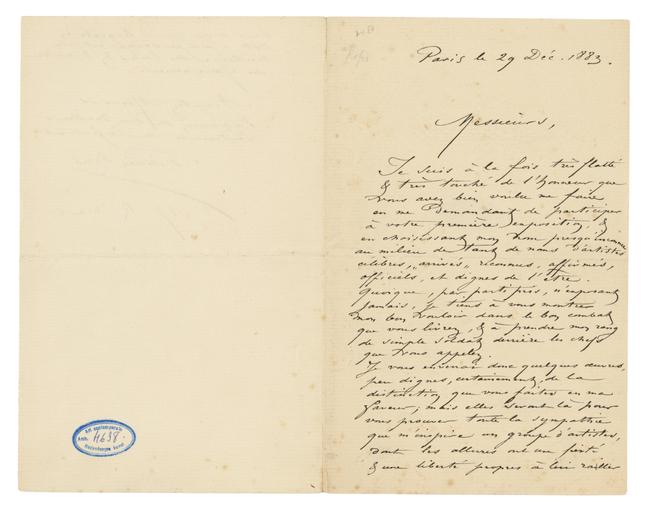 Paris le 29 Déc. 1883.
Messieurs,
Je suis à la fois très flatté
& très touché de l'honneur que
vous avez bien voulu me faire
en me demandant de participer
à votre première exposition, &
en choisissant mon nom presqu'inconnu
au milieu de tant de noms d'artistes
célèbres, "arrivés" reconnus, affirmés,
officiels, et dignes de l'être.
Quoique, par parti pris, n'exposant
jamais, je tiens à vous montrer
mon bon vouloir dans le bon combat
que vous livrez, & à prendre mon rang
de simple soldat derrière les chefs
que vous appelez.
Je vous enverrai donc quelques œuvres,
peu dignes, certainement, de la
distinction que vous faites en ma
faveur; mais elles seront là pour
vous prouver toute la sympathie
que m'inspire un groupe d'artistes,
dont les allures ont une fierté
& une liberté propres à leur rallier
Art contemporain
Arch. 4638.
Hedendaagse kunst